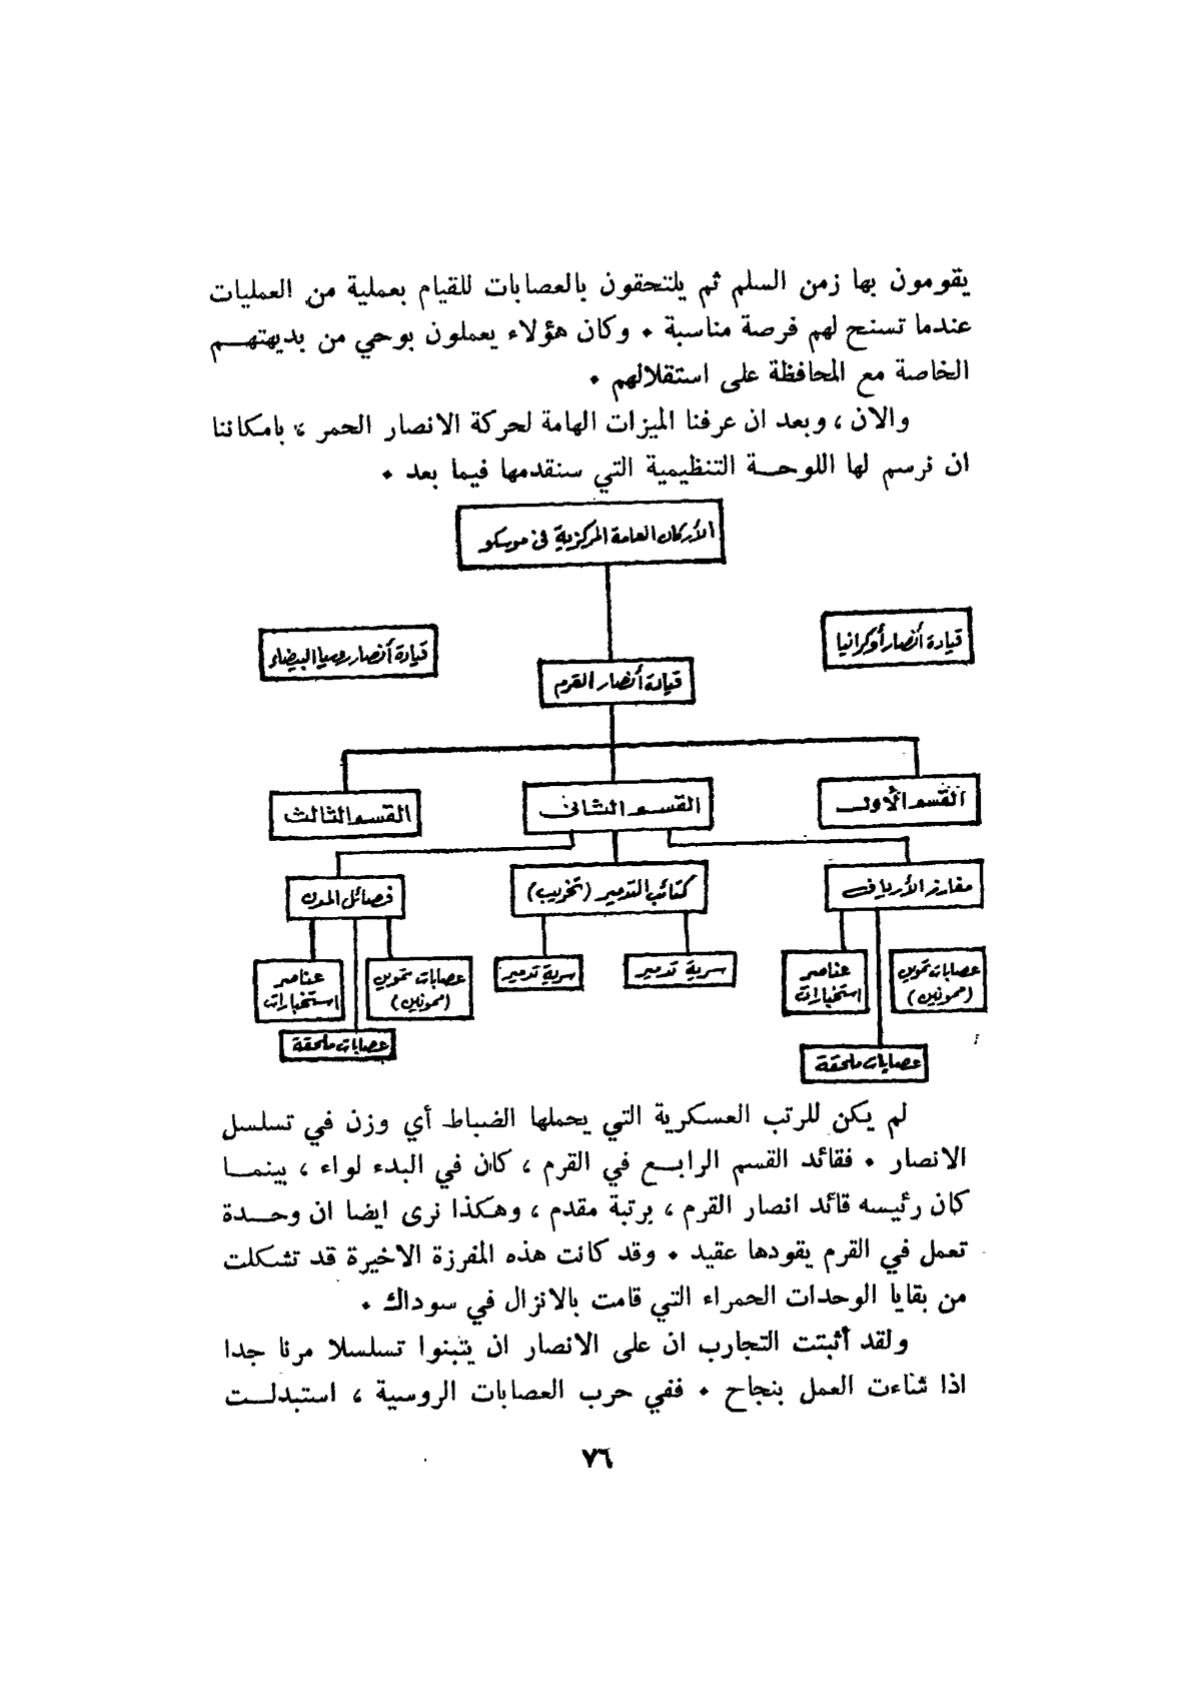 يقومون بها زمن السلم ثم يلتحقون بالعصابات للقيام بعملية من العمليات
عندما تسنح لهم فرصة مناسبة • وكان هؤلاء يعملون بوحي من بديهتهـــم
الخاصة مع المحافظة على استقلالهم •
والان ، وبعد ان عرفنا الميزات الهامة لحركة الانصار الحمر ، بامكاننا
ان نرسم لها اللوحـــة التنظيمية التي سنقدمها فيما بعد •
الأركان العامة المركزية في موسكو
قيادة أنصار أوكرانيا
قيادة أنصار روسيا البيضاء
قيادة أنصار القرم
القسم الأول
القسم الثاني
القسم الثالث
مفارز الأرياف
كتائب التدمير (تخريب)
فصائل المدن
عصابات تموين
(ممونين)
عناصر
استخبارات
سرية تدمير
سرية تدمير
عصابات تموين
(ممونين)
عناصر
استخبارات
عصابات ملحقة
عصابات ملحقة
لم يكن للرتب العسكرية التي يحملها الضباط أي وزن في تسلسل
الانصار • فقائد القسم الرابـــع في القرم ، كان في البدء لواء ، بينمـــا
كان رئيسه قائد انصار القرم ، برتبة مقدم ، وهكذا نرى ايضا ان وحـــدة
تعمل في القرم يقودها عقيد • وقد كانت هذه المفرزة الاخيرة قد تشكلت
من بقايا الوحدات الحمراء التي قامت بالانزال في سوداك •
ولقد أثبتت التجارب ان على الانصار ان يتبنوا تسلسلا مرنا جدا
اذا شاءت العمل بنجاح • ففي حرب العصابات الروسية ، استبدلـــت
٧٦